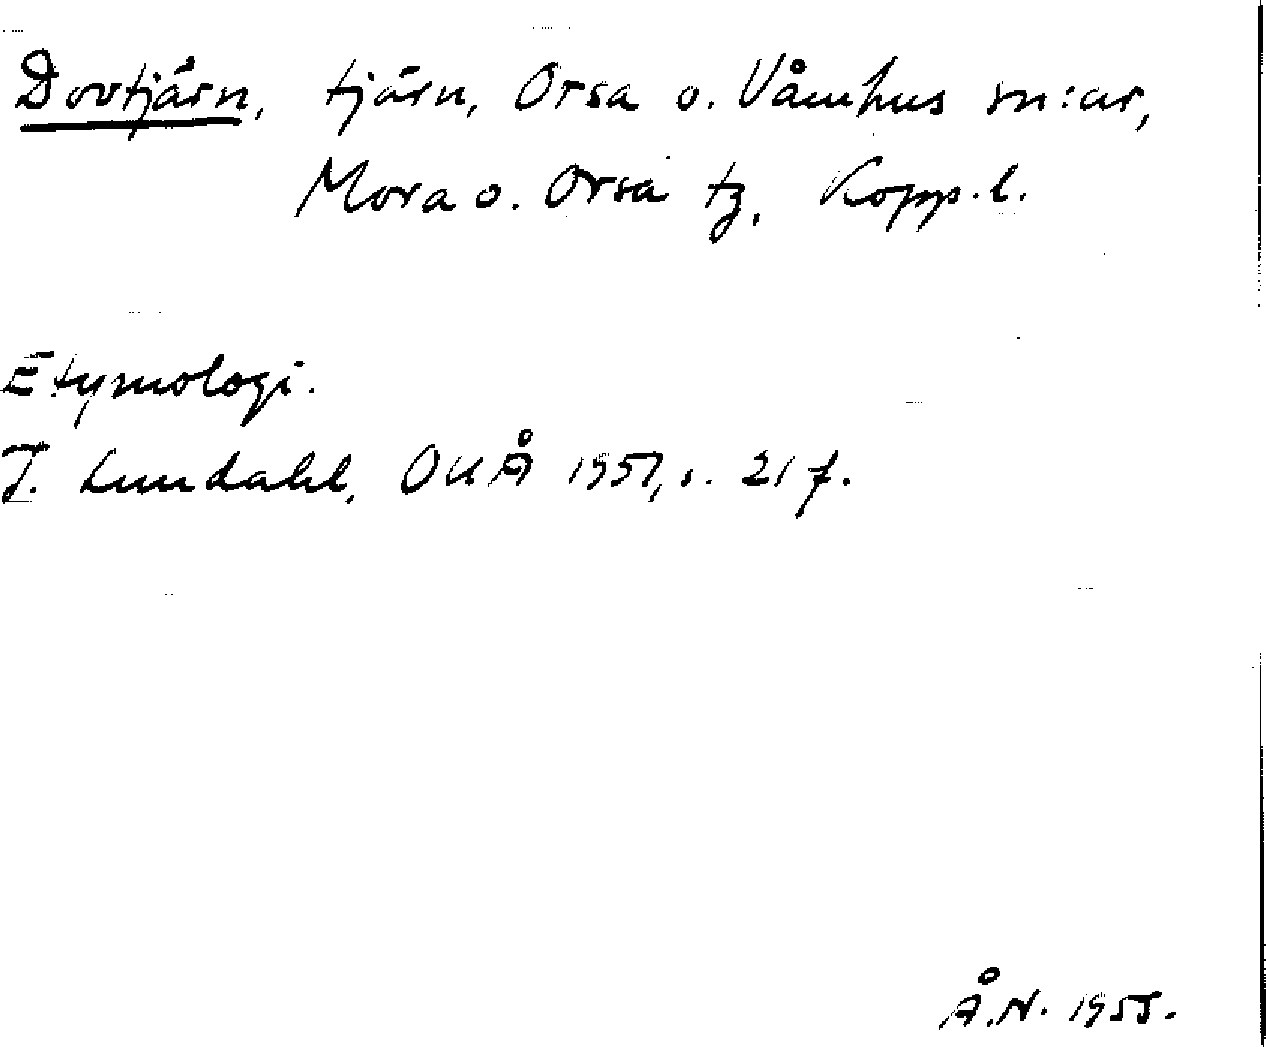 Dovtjärn, tjärn, Orsa o. Våmhus sn:ar,
Mora o. Orsa tg, Kopp. l.
Etymologi.
I. Lundahl, OUÅ 1951, s. 21 f.
Å.N. 1955.